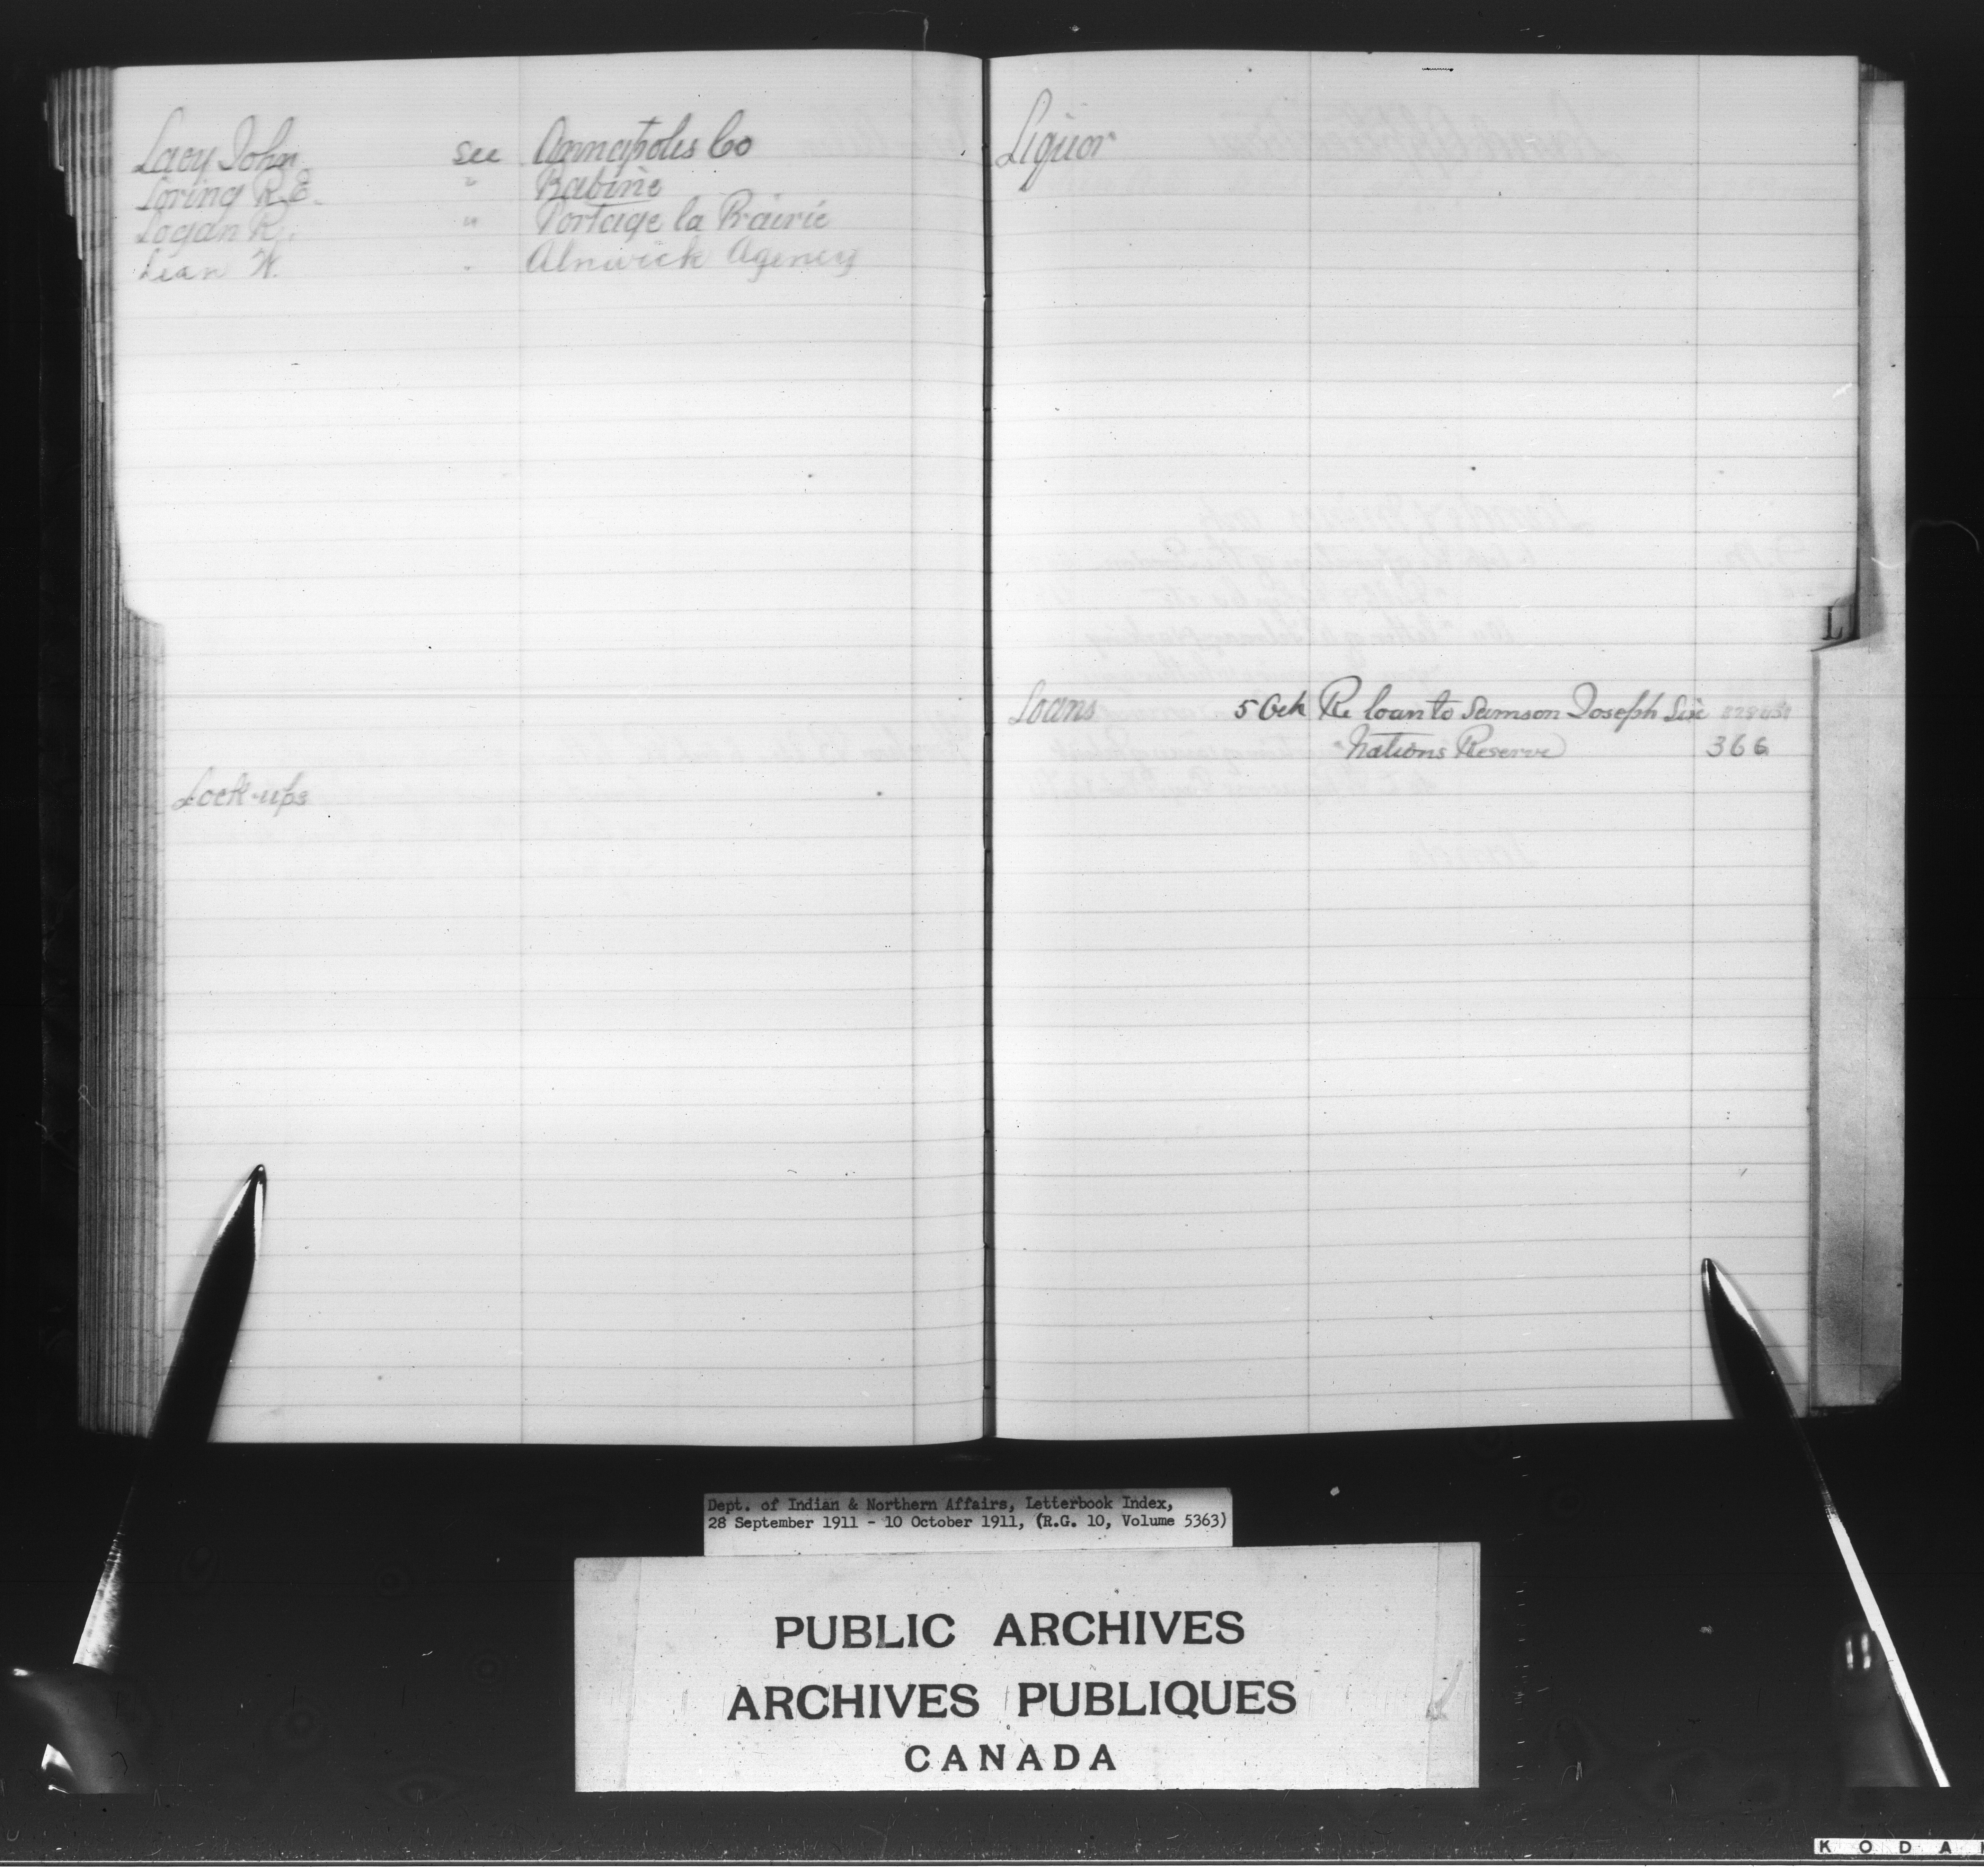 Lacy John see Annapolis Co
Loring R.E. " Babine
Logan R. " Portage la Prairie
Lean W. . Alnwick Agency
Lock-ups
Liquor
L
Loans 5 Oct Re loan to Samson Joseph Six
Nations Reserve 366
Dept. of Indian & Northern Affairs, Letterbook Index,
28 September 1911 - 10 October 1911, (R.G. 10, Volume 5363)
PUBLIC ARCHIVES
ARCHIVES PUBLIQUES
CANADA
KODA